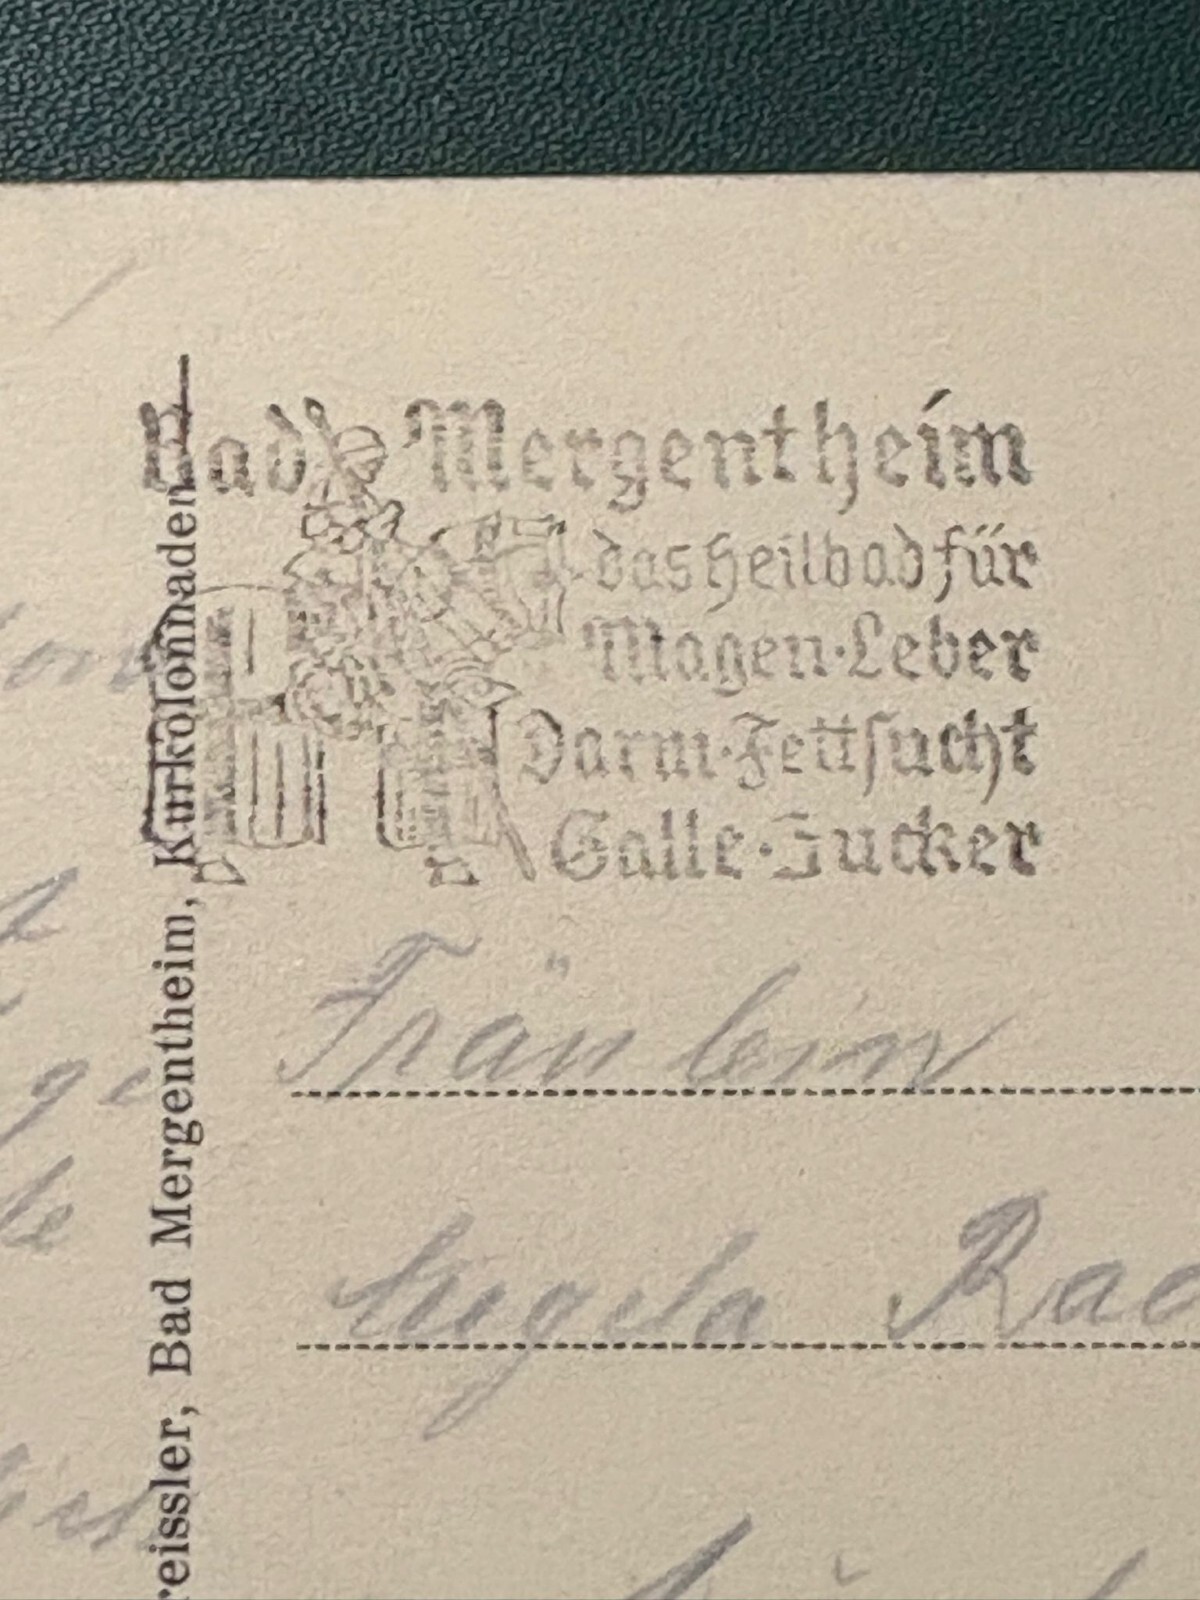 Bad Mergentheim
das Heilbad für
Magen·Leber
Darm·Fettsucht
Galle·Zucker
Fräulein
Angela
reissler, Bad Mergentheim, Kurkolonnaden